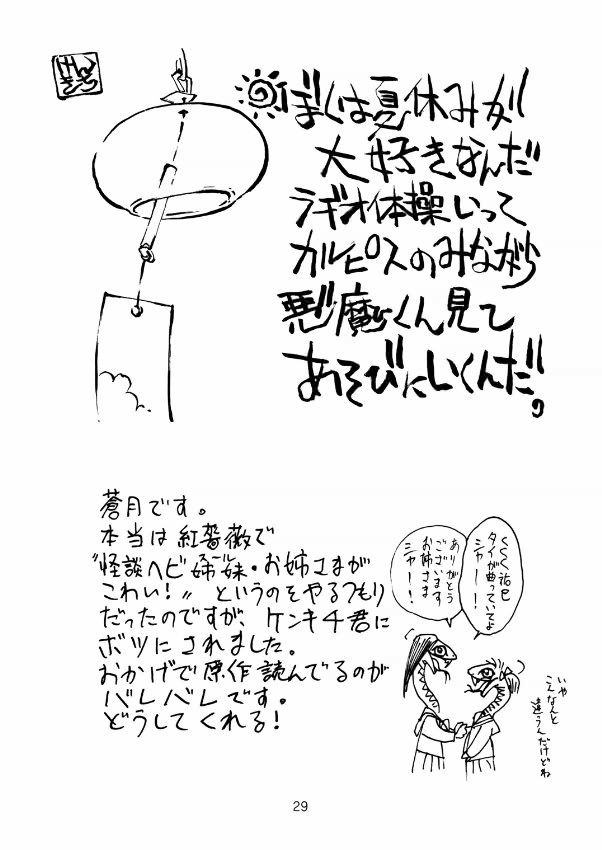 けんきち
ぼくは夏休みが
大好きなんだ
ラヂオ体操いって
カルピスのみながら
悪魔くん見て
あそびにいくんだ。
蒼月です。
本当は紅薔薇で
"怪談ヘビ姉妹・お姉さまが
こわい!" というのをやるつもり
だったのですが、ケンキチ君に
ボツにされました。
おかげで原作読んでるのが
バレバレです。
どうしてくれる!
くくく祐巳
タイが曲っていてよ
シャーー!
ありがとう
ございます
お姉さま
シャーー!!
いや
こんなんと
違うんだけどね
29